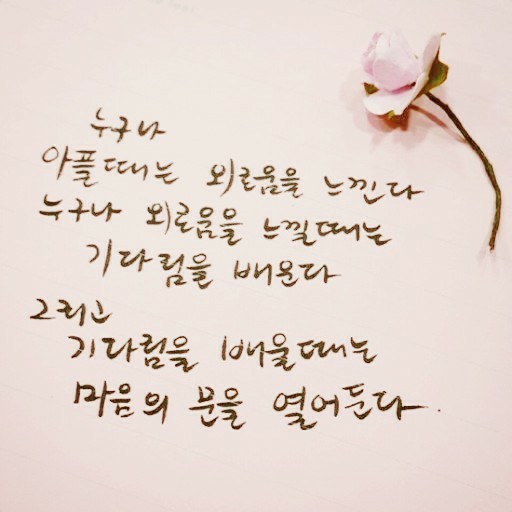 누구나
아플때는 외로움을 느낀다
누구나 외로움을 느낄때는
기다림을 배운다
그리고
기다림을 배울때는
마음의 문을 열어둔다.